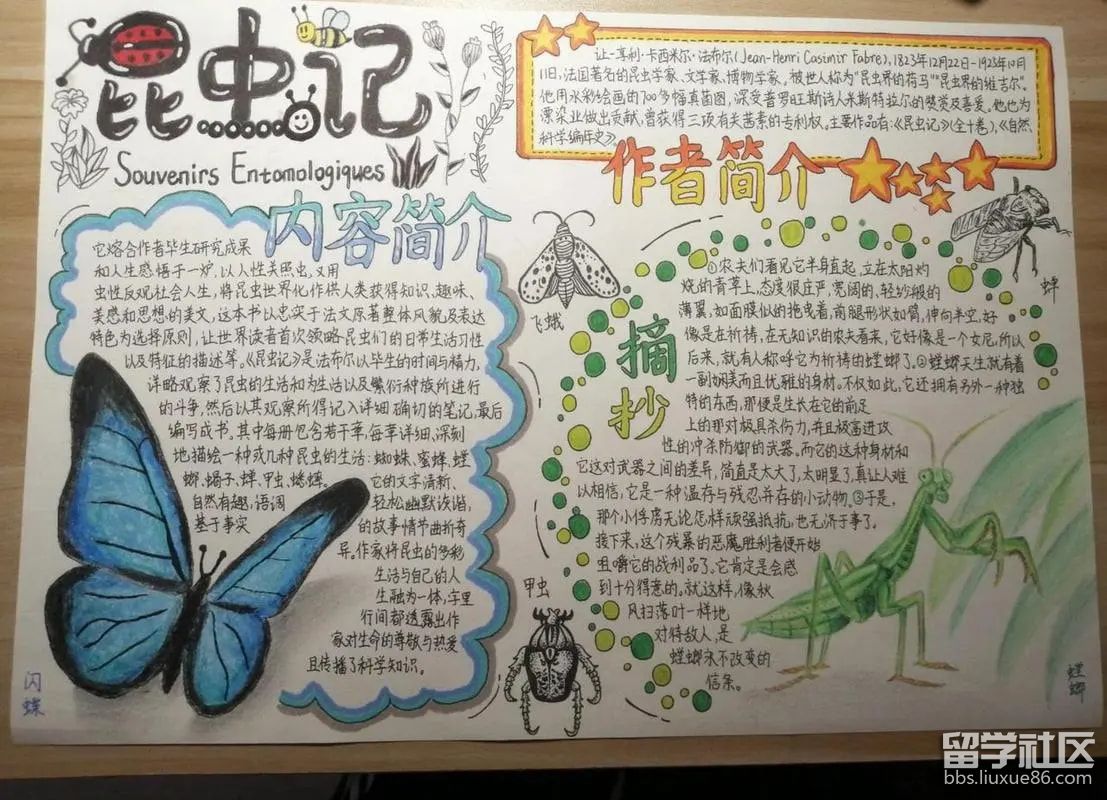 昆虫记
Souvenirs Entomologiques
让-亨利·卡西米尔·法布尔(Jean-Henri Casimir Fabre),1823年12月22日-1923年10月
11日,法国著名的昆虫学家、文学家、博物学家,被世人称为"昆虫界的荷马""昆虫界的维吉尔"。
他用水彩绘画的700多幅真菌图,深受普罗旺斯诗人米斯特拉尔的赞赏及喜爱。他也为
漂染业做出贡献,曾获得三项有关茜素的专利权。主要作品有:《昆虫记》(全十卷),《自然
科学编年史》。
作者简介
内容简介
它熔合作者毕生研究成果
和人生感悟于一炉,以人性关照虫,又用
虫性反观社会人生,将昆虫世界化作供人类获得知识、趣味、
美感和思想的美文,这本书以忠实于法文原著整体风貌及表达
特色为选择原则,让世界读者首次领略昆虫们的日常生活习性
以及特征的描述等。《昆虫记》是法布尔以毕生的时间与精力,
详略观察了昆虫的生活和为生活以及繁衍种族所进行
的斗争,然后以其观察所得记入详细确切的笔记,最后
编写成书。其中每册包含若干章,每章详细、深刻
地描绘一种或几种昆虫的生活:蜘蛛、蜜蜂、螳
螂、蝎子、蝉、甲虫、蟋蟀。
它的文字清新、
自然有趣,语调
轻松幽默诙谐,
基于事实
的故事情节曲折奇
异。作家将昆虫的多彩
生活与自己的人
生融为一体,字里
行间都透露出作
家对生命的尊敬与热爱
且传播了科学知识。
闪蝶
飞蛾
甲虫
蝉
摘抄
①农夫们看见它半身直起,立在太阳灼
烧的青草上,态度很庄严,宽阔的、轻纱般的
薄翼,如面膜似的拖曳着,两腿形状如臂,伸向半空,好
像是在祈祷,在无知识的农夫看来,它好像是一个女尼,所以
后来,就有人称呼它为祈祷的螳螂了。②螳螂天生就有着
一副娴美而且优雅的身材。不仅如此,它还拥有另外一种独
特的东西,那便是生长在它的前足
上的那对极具杀伤力,并且极富进攻
性的冲杀防御的武器。而它的这种身材和
它这对武器之间的差异,简直是太大了,太明显了,真让人难
以相信,它是一种温存与残忍并存的小动物。③于是,
那个小俘虏无论怎样顽强抵抗,也无济于事了。
接下来,这个残暴的恶魔胜利者便开始
咀嚼它的战利品了。它肯定是会感
到十分得意的。就这样,像秋
风扫落叶一样地
对待敌人,是
螳螂永不改变的
信条。
螳螂
留学社区
bbs.liuxue86.com